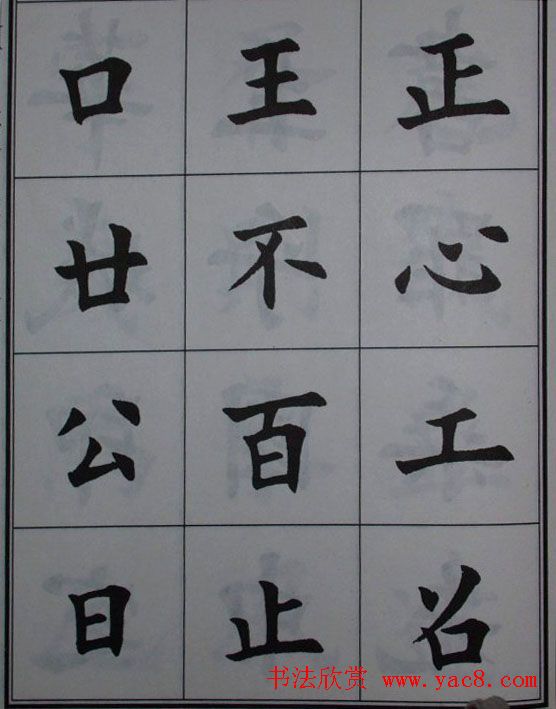 正心工
王不百止
口廿公日
书法欣赏 www.yac8.com